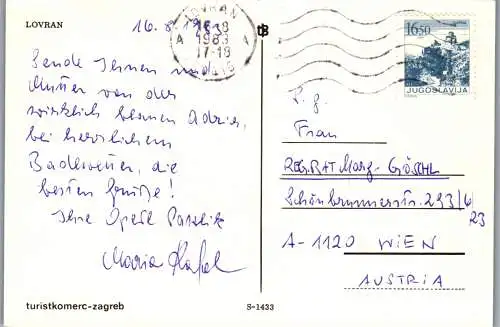 LOVRAN
16. 8. 1983
LOVRAN
16.8
1983
17-18
A 1
16.50
JUGOSLAVIJA
Sende Ihnen und
Mutter von der
wirklich blauen Adria,
bei herrlichem
Badewetter, die
besten Grüße!
Ihre
Maria
L. g.
Frau
REG. RAT Marg. GÖSCHL
Schönbrunnerstr. 293/6/
23
A-1120 WIEN
AUSTRIA
turistkomerc-zagreb
S-1433